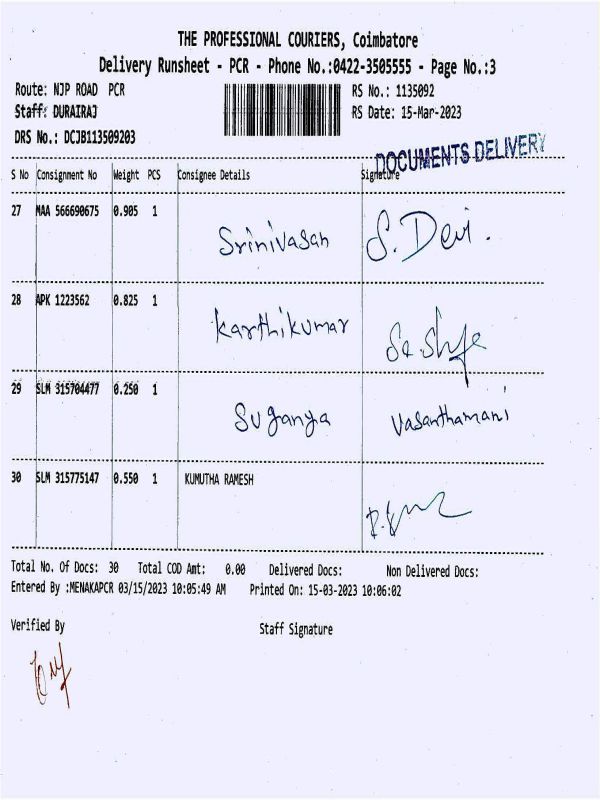 THE PROFESSIONAL COURIERS, Coimbatore
Delivery Runsheet - PCR - Phone No.:0422-3505555 - Page No.:3
Route: NJP ROAD PCR
RS No.: 1135092
Staff: DURAIRAJ
RS Date: 15-Mar-2023
DRS No.: DCJB113509203
DOCUMENTS DELIVERY
S No Consignment No Weight PCS Consignee Details Signature
27 MAA 566690675 0.905 1 Srinivasan S. Devi.
28 APK 1223562 0.825 1 Karthikumar
29 SLM 315704477 0.250 1 Suganya Vasanthamani
30 SLM 315775147 0.550 1 KUMUTHA RAMESH
Total No. Of Docs: 30 Total COD Amt: 0.00 Delivered Docs: Non Delivered Docs:
Entered By :MENAKAPCR 03/15/2023 10:05:49 AM Printed On: 15-03-2023 10:06:02
Verified By Staff Signature